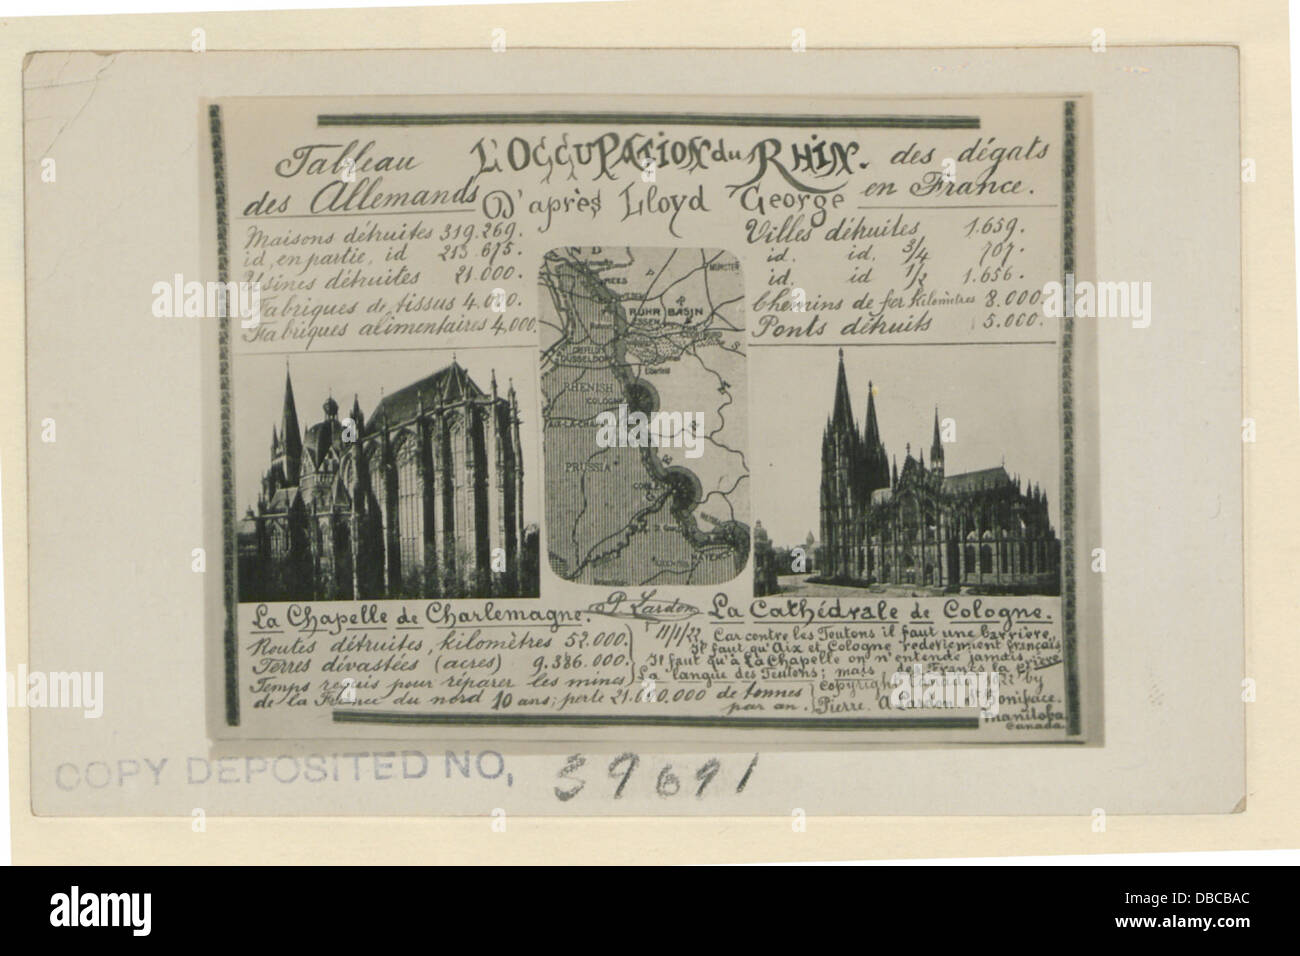 Tableau L'OCCUPATION du RHIN. des dégats
des Allemands D'après Lloyd George en France.
Maisons détruites 319.269.
id, en partie, id 213.675.
Usines détruites 21.000.
Fabriques de tissus 4.000.
Fabriques alimentaires 4,000.
Villes détruites 1.659.
id. id. 3/4 707.
id. id 1/2 1.656.
Chemins de fer kilomètres 8.000.
Ponts détruits 5.000.
MUNSTER
REES
RUHR BASIN
ESSEN
CREFELD
DUSSELDORF
Elberfeld
RHENISH
COLOGNE
AIX-LA-CHA
PRUSSIA
COBL
MAYENCE
La Chapelle de Charlemagne.
P. Lardon
La Cathédrale de Cologne.
Routes détruites, kilomètres 52.000.
Terres dévastées (acres) 9.386.000.
Temps requis pour réparer les mines
de la France du nord 10 ans; perte 21.000.000 de tonnes
par an.
11/1/22 Car contre les Teutons il faut une barrière,
Il faut qu'Aix et Cologne redeviennent français,
Il faut qu'à La Chapelle on n'entende jamais
La langue des Teutons; mais des Francs la prière
Copyright Canada 1922 by
Pierre. A Lardon St Boniface.
Manitoba
Canada.
COPY DEPOSITED NO, 39691
alamy
alamy
www.alamy.com
Image ID: DBCBAC
www.alamy.com